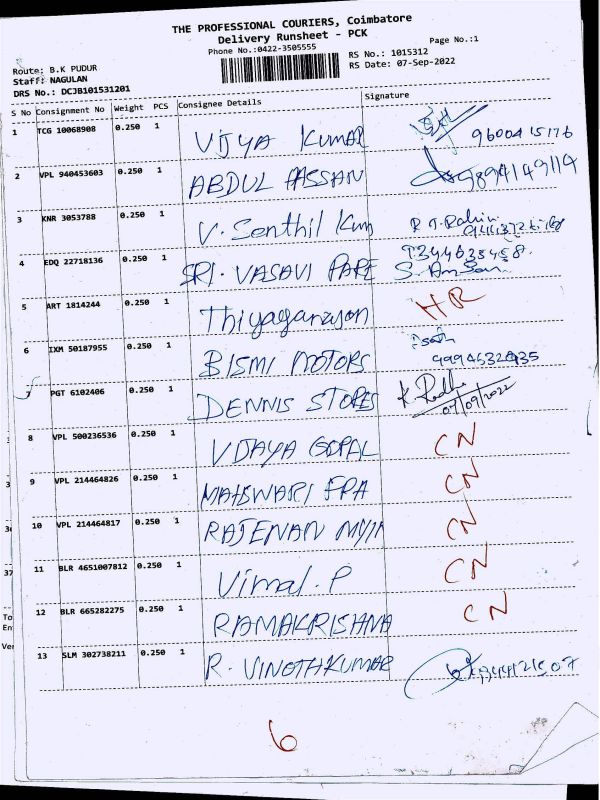 THE PROFESSIONAL COURIERS, Coimbatore
Delivery Runsheet - PCK
Phone No.:0422-3505555
Page No.:1
RS No.: 1015312
RS Date: 07-Sep-2022
Route: B.K PUDUR
Staff: NAGULAN
DRS No.: DCJB101531201
S No Consignment No Weight PCS Consignee Details Signature
1 TCG 10068908 0.250 1 VIJYA KUMAR 9600415176
2 VPL 940453603 0.250 1 ABDUL HASSAN
3 KNR 3053788 0.250 1 V. Senthil Kum
4 EDQ 22718136 0.250 1 SRI. VASAVI PAPE
5 ART 1814244 0.250 1 Thiyagarajan HR
6 IXM 50187955 0.250 1 BISMI MOTORS
7 PGT 6102406 0.250 1 DENNIS STORES K. Radha
07/09/2022
8 VPL 500236536 0.250 1 VIJAYA GOPAL CN
9 VPL 214464826 0.250 1 MAHSWARI EPA CN
10 VPL 214464817 0.250 1 RAJENAN CN
11 BLR 4651007812 0.250 1 Vimal. P CN
12 BLR 665282275 0.250 1 RAMAKRISHNA CN
13 SLM 302738211 0.250 1 R. VINOTHKUMAR
6